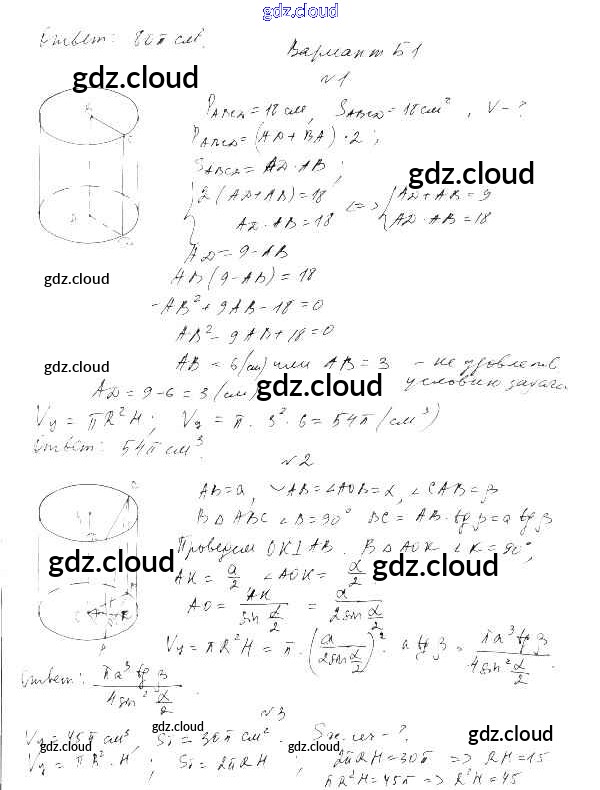 gdz.cloud
Ответ: 80π см².
Вариант Б1
gdz.cloud
№1
P_ABCD = 18 см, S_ABCD = 18 см², V - ?
P_ABCD = (AD + BA) · 2;
S_ABCD = AD · AB;
gdz.cloud
{ 2(AD+AB) = 18
AD · AB = 18 <=> { AD + AB = 9
AD · AB = 18
AD = 9 - AB
gdz.cloud
AB(9 - AB) = 18
-AB² + 9AB - 18 = 0
AB² - 9AB + 18 = 0
gdz.cloud
AB = 6 (см) или AB = 3 - не удовлетв.
условию задачи
AD = 9 - 6 = 3 (см)
gdz.cloud
Vц = πR²H; Vц = π · 3² · 6 = 54π (см³)
Ответ: 54π см³.
№2
AB = a, ◡AB = ∠AOB = α, ∠CAB = β
В ΔABC ∠B = 90° BC = AB · tg β = a tg β
Проведем OK⊥AB. В ΔAOK ∠K = 90°,
gdz.cloud
gdz.cloud
AK = a/2 ∠AOK = α/2
AO = AK / sin α/2 = a / 2 sin α/2
Vц = πR²H = π · (a / 2 sin α/2)² · a tg β = πa³ tg β / 4 sin² α/2
Ответ: πa³ tg β / 4 sin² α/2.
gdz.cloud
№3
Vц = 45π см³, Sб = 30π см². Sос.сеч - ?
gdz.cloud
gdz.cloud
gdz.cloud
Vц = πR² · H; Sб = 2πRH; 2πRH = 30π => RH = 15
πR²H = 45π => R²H = 45